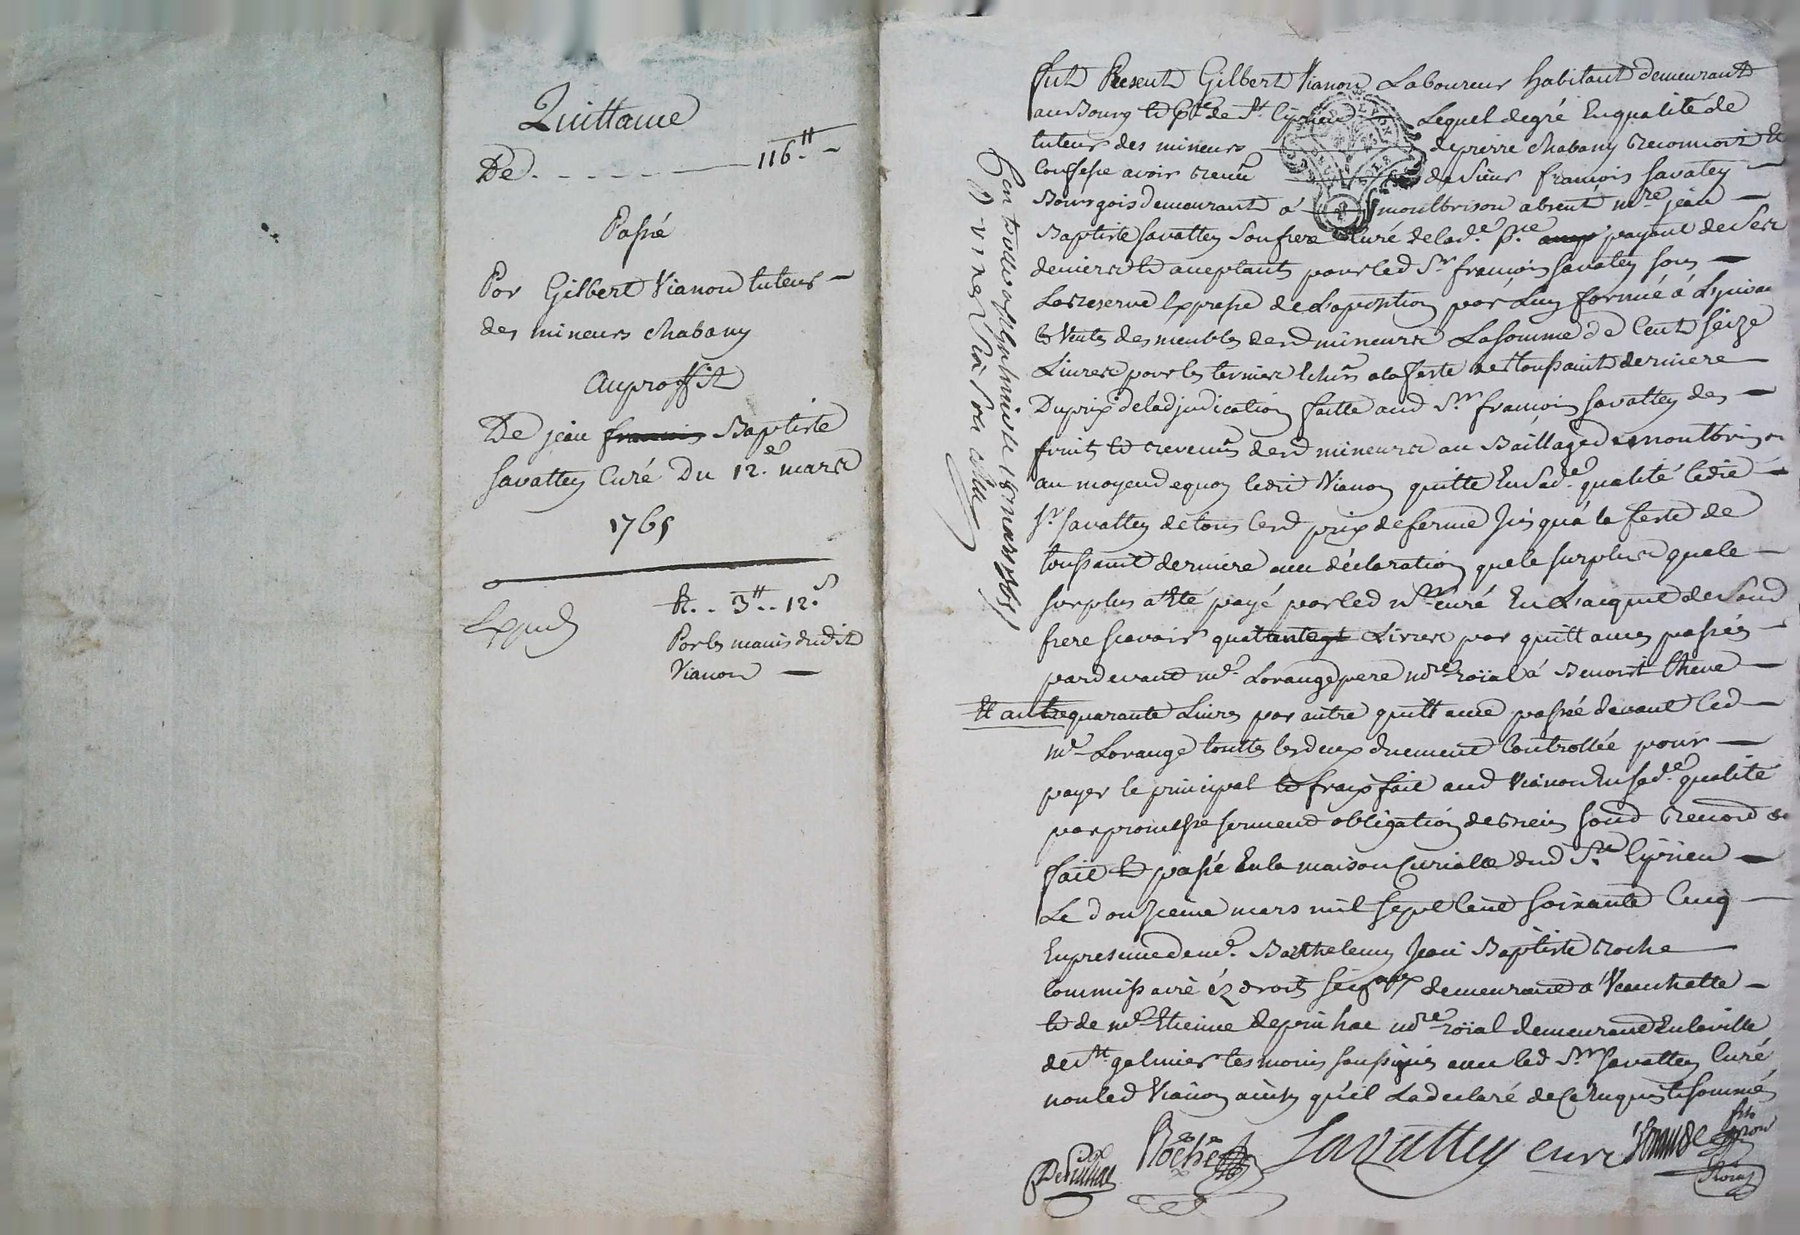 Quittance
De . - - - - - - 116.tt -
Passé
Par Gilbert Vianon tuteur -
des mineurs Chabany
Auproffit
De jean francois Baptiste
Savattey Curé Du 12.e mars
1765
R. . 3tt . . 12.s
Par les mains dudit
Vianon -
Expédié
fut Present Gilbert Vianon Laboureur habitant demeurant
au Bourg et psse de st Cyprien Lequel de gré En qualité de
tuteur des mineurs de pierre Chabany reconnoit et
Confesse avoir receu de sieur francois Savatey -
Bourgois demeurant á montbrison absent mre jean -
Baptiste Savattey son frere Curé de lad.e psse payant de ses
deniers et aceptant pour led Sr francois Savatey sous -
La reserve Expresse de L'aposition par Luy formée á
& Ventes des meubles desd mineurs La somme de Cent seize
Livres pour les termes Echus a la feste de toussaint derniere -
Du prix de l'adjudication faitte aud Sr francois Savattey des -
fruits et revenus desd mineurs au Baillage de montbrison
au moyend equoy ledit Vianon quitte En sad.e qualité ledit -
Sr Savattey de tous lesd prix de ferme jusqu'á la feste de
toussaint derniere avec déclaration que le surplus quele -
surplus a Eté payé par led sr curé En L'acquit de sond
frere scavoir quarante Livres par quittances passées -
pardevant me Lorange pere nore roïal á Benoist
Et autre quarante Livres par autre quittance passée devant led -
me Lorange touttes les deux duement Controllée pour -
payer le principal et fraix fait aud Vianon En sad.e qualité
par promesse serment obligation de biens soud renond &
fait et passé En la maison Curialle dud St Cyprien -
Le douzieme mars mil sept Cent soixante Cinq -
En presence de me Barthelemy Jean Baptiste Roche
Commissaire ez droits seigaux demeurant á Veauchette -
et de me Etienne depeinhac nore roïal demeurand En la ville
de st galmier tesmoins soussignés avec led Sr Savattey Curé
non led Vianon ainsy qu'il La declaré de Ce Enquis et sommé
Roche Savattey curé